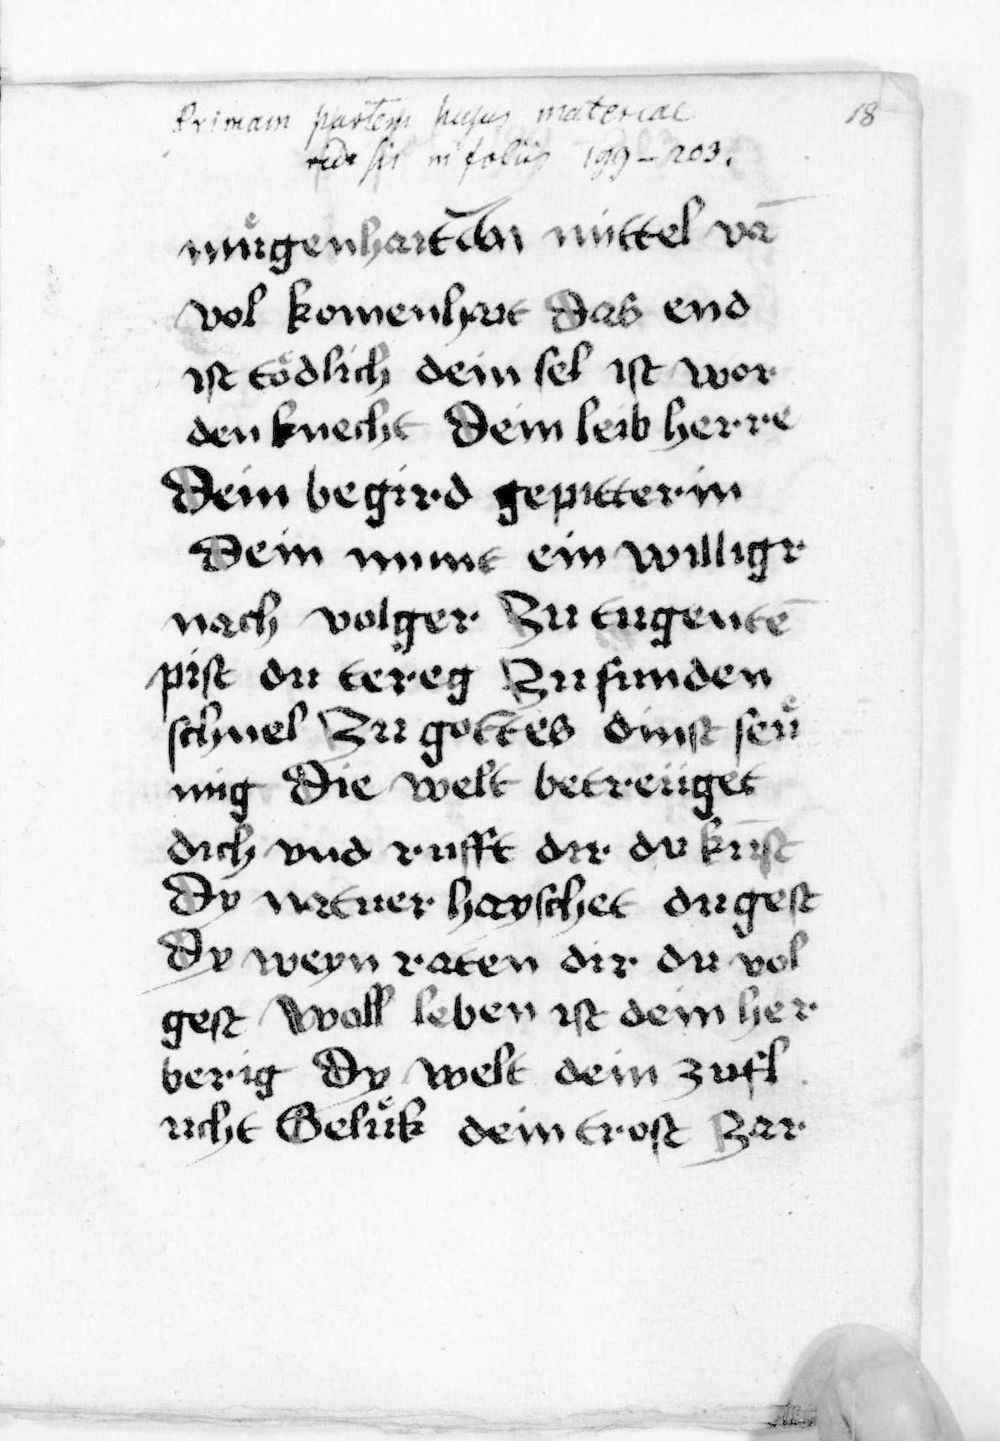 Primam partem hujus materiae 18
vide sis in foliis 199–203.
mu̇genhart dein mittel vā
vol komenhait das end
ist tödlich dein sel ist wor
den knecht Dein leib herre
Dein begird gepitterin
Dein mimt ein willigr
nach volger Zu tugentē
pist du tereg Zu sunden
schnel Zu gottes dinst seu̇
mig Die welt betreüget
dich vnd rufft dir du kūst
Dy natuer hayschet du gest
Dy weyn raten dir du vol
gest Woll leben ist dein her
berig Dy welt dein zufl
ucht Gelu̇k dein trost Zar